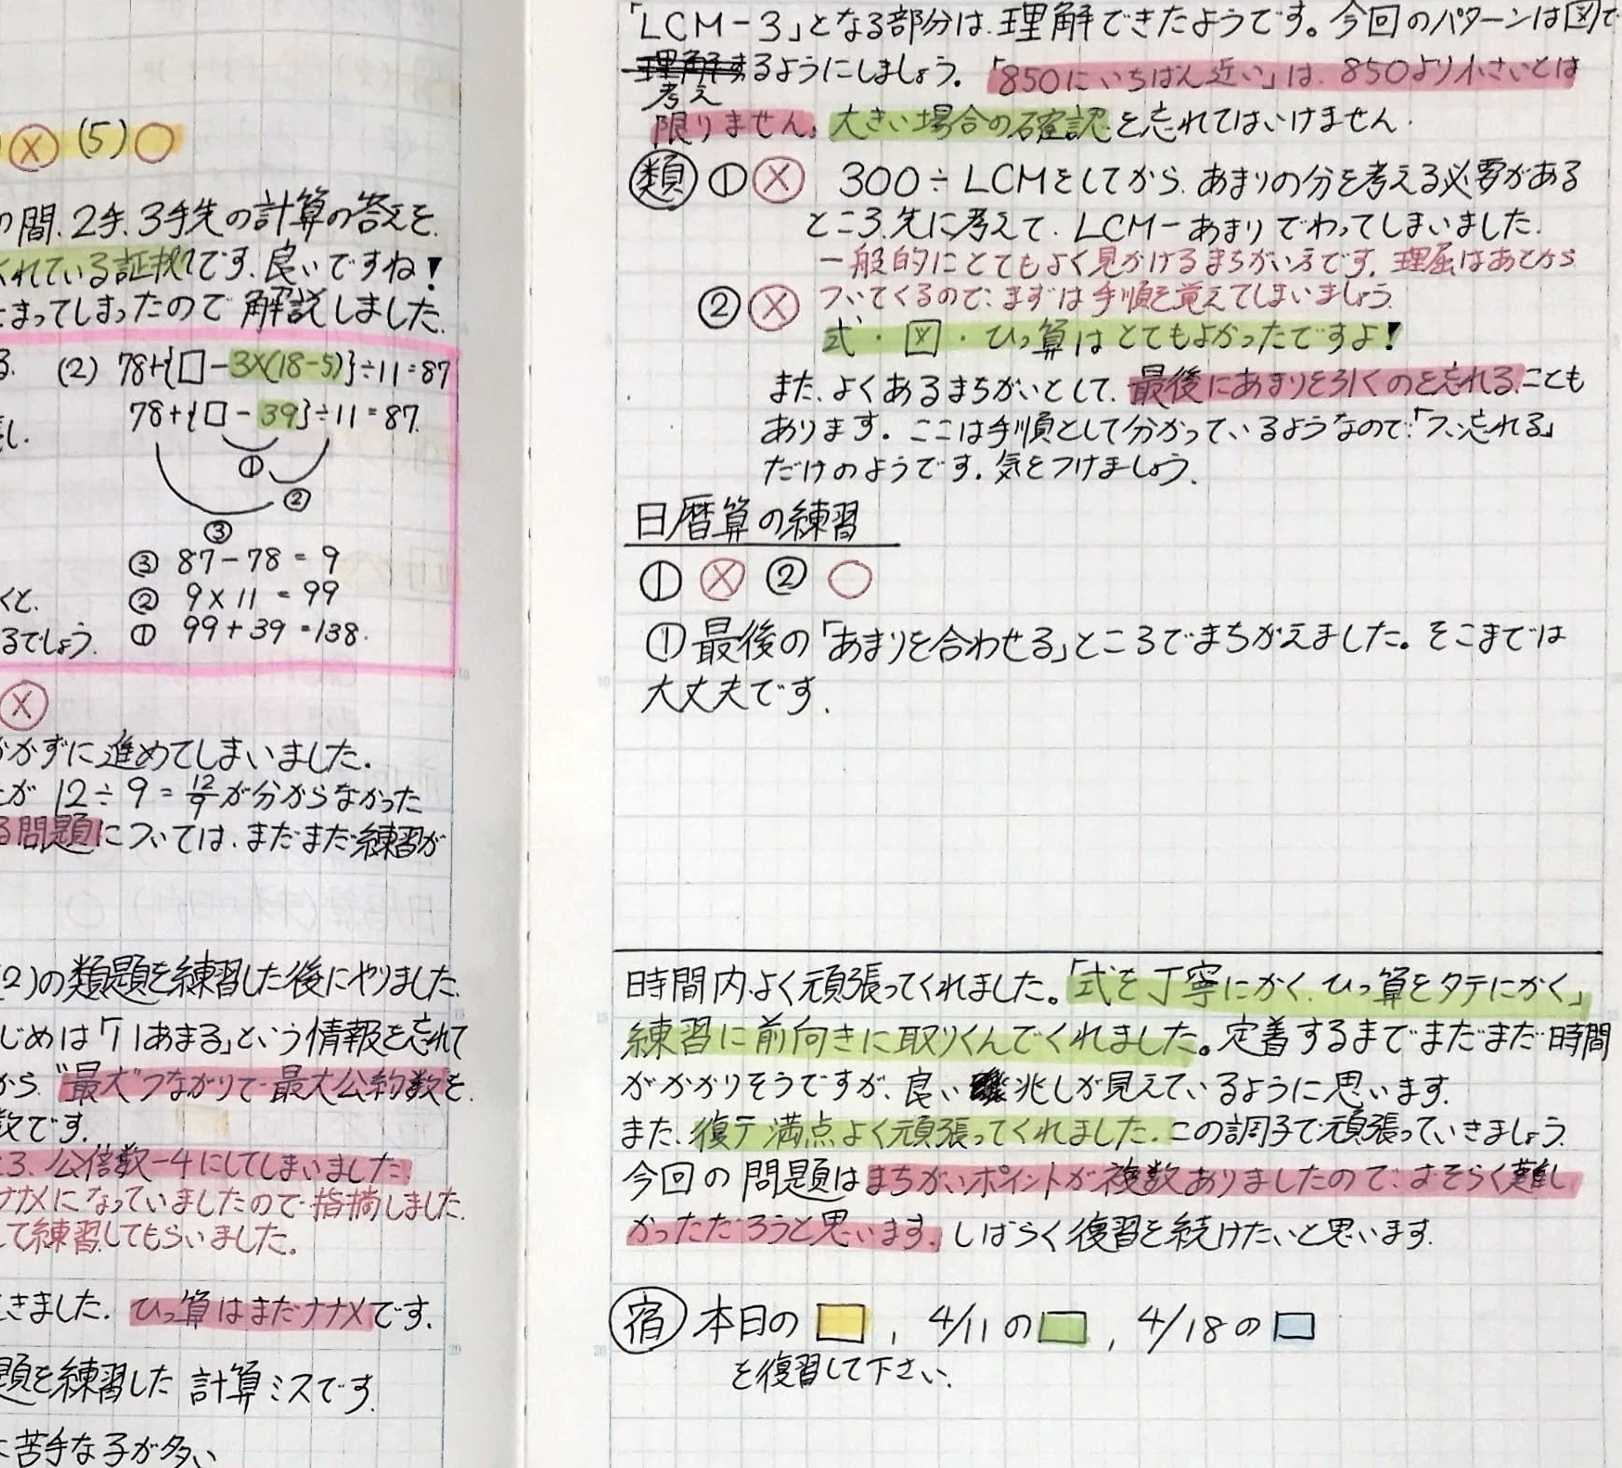 (5)○
の間、2手、3手先の計算の答えを
くれている証拠です。良いですね!
止まってしまったので解説しました。
(2) 78+{□-3×(18-5)}÷11=87
78+{□-39}÷11=87
①
②
③
③ 87-78=9
② 9×11=99
くと、
① 99+39=138.
るでしょう。
かかずに進めてしまいました。
が 12÷9=12/9が分からなかった
る問題については、まだまだ練習が
(2)の類題を練習した後にやりました。
じめは「71あまる」という情報を忘れて
から、"最大"つながりで最大公約数を
数です。
3、公倍数-4にしてしまいました。
ナナメになっていましたので指摘しました。
して練習してもらいました。
きました。ひっ算はまだナナメです。
題を練習した 計算ミスです。
に苦手な子が多い
「LCM-3」となる部分は、理解できたようです。今回のパターンは図で
理解するようにしましょう。「850にいちばん近い」は、850より小さいとは
考え
限りません。大きい場合の確認を忘れてはいけません。
類 ① × 300÷LCMをしてから、あまりの分を考える必要がある
ところ、先に考えて、LCM-あまりでわってしまいました。
一般的にとてもよく見かけるまちがい方です。理屈はあとから
② × ついてくるので、まずは手順を覚えてしまいましょう。
式・図・ひっ算はとてもよかったですよ!
また、よくあるまちがいとして、最後にあまりを引くのを忘れることも
あります。ここは手順として分かっているようなので、「つい忘れる」
だけのようです。気をつけましょう。
日暦算の練習
① × ② ○
①最後の「あまりを合わせる」ところでまちがえました。そこまでは
大丈夫です。
時間内、よく頑張ってくれました。「式を丁寧にかく、ひっ算をタテにかく」
練習に前向きに取りくんでくれました。定着するまでまだまだ時間
がかかりそうですが、良い兆しが見えているように思います。
また、復テ満点よく頑張ってくれました。この調子で頑張っていきましょう。
今回の問題はまちがいポイントが複数ありましたので、おそらく難し
かっただろうと思います。しばらく復習を続けたいと思います。
宿 本日の□, 4/11の□, 4/18の□
を復習して下さい。